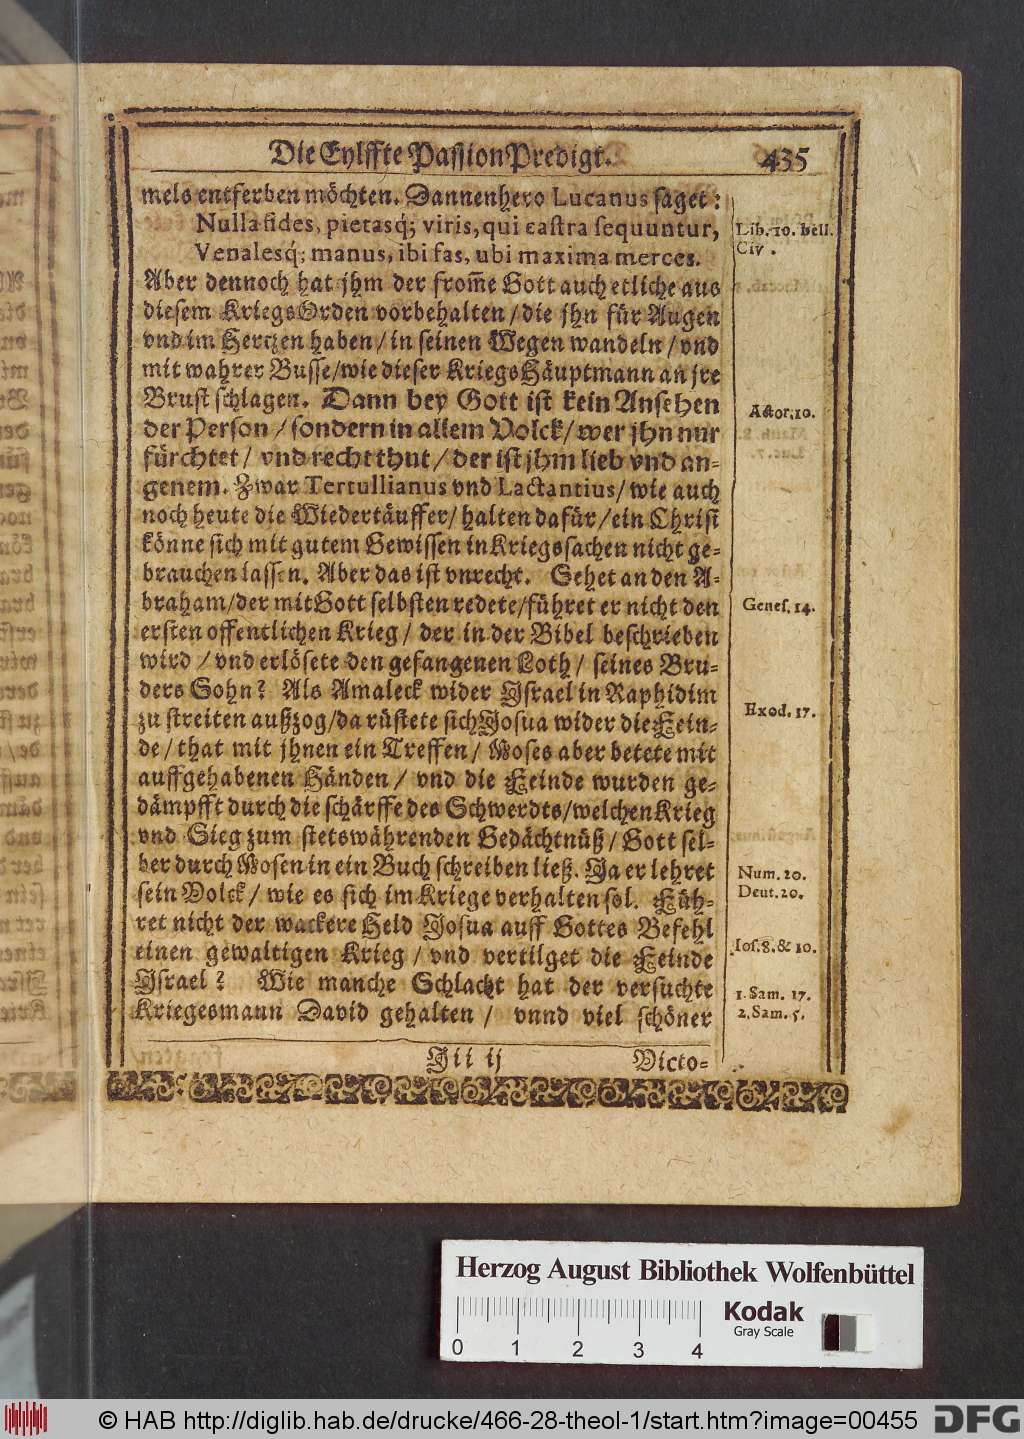 Die Eylffte Passion Predigt. 435
mels entferben möchten. Dannenhero Lucanus saget:
Nulla fides, pietasq́; viris, qui castra sequuntur,
Venalesq́; manus, ibi fas, ubi maxima merces.
Lib. 10. bell.
Civ.
Aber dennoch hat jhm der from̃e Gott auch etliche aus
diesem KriegsOrden vorbehalten / die jhn für Augen
vnd im Hertzen haben / in seinen Wegen wandeln / vnd
mit wahrer Busse / wie dieser KriegsHäuptmann an jre
Brust schlagen. Dann bey Gott ist kein Ansehen
Actor. 10.
der Person / sondern in allem Volck / wer jhn nur
fürchtet / vnd recht thut / der ist jhm lieb vnd an-
genem. Zwar Tertullianus vnd Lactantius / wie auch
noch heute die Wiedertäuffer / halten dafür / ein Christ
könne sich mit gutem Gewissen in Kriegssachen nicht ge-
brauchen lassen. Aber das ist vnrecht. Sehet an den A-
braham / der mit Gott selbsten redete / führet er nicht den
Genes. 14.
ersten offentlichen Krieg / der in der Bibel beschrieben
wird / vnd erlösete den gefangenen Loth / seines Bru-
ders Sohn? Als Amaleck wider Jsrael in Raphidim
Exod. 17.
zu streiten außzog / da rüstete sich Josua wider die Fein-
de / that mit jhnen ein Treffen / Moses aber betete mit
auffgehabenen Händen / vnd die Feinde wurden ge-
dämpfft durch die schärffe des Schwerdts / welchen Krieg
vnd Sieg zum stetswährenden Gedächtnüß / Gott sel-
ber durch Mosen in ein Buch schreiben ließ. Ja er lehret
Num. 20.
sein Volck / wie es sich im Kriege verhalten sol. Füh-
Deut. 20.
ret nicht der wackere Held Josua auff Gottes Befehl
einen gewaltigen Krieg / vnd vertilget die Feinde
Ios. 8. & 10.
Jsrael? Wie manche Schlacht hat der versuchte
1. Sam. 17.
Kriegesmann David gehalten / vnnd viel schöner
2. Sam. 5.
Jii ij Victo-
Herzog August Bibliothek Wolfenbüttel
Kodak
Gray Scale
0 1 2 3 4
© HAB http://diglib.hab.de/drucke/466-28-theol-1/start.htm?image=00455 DFG